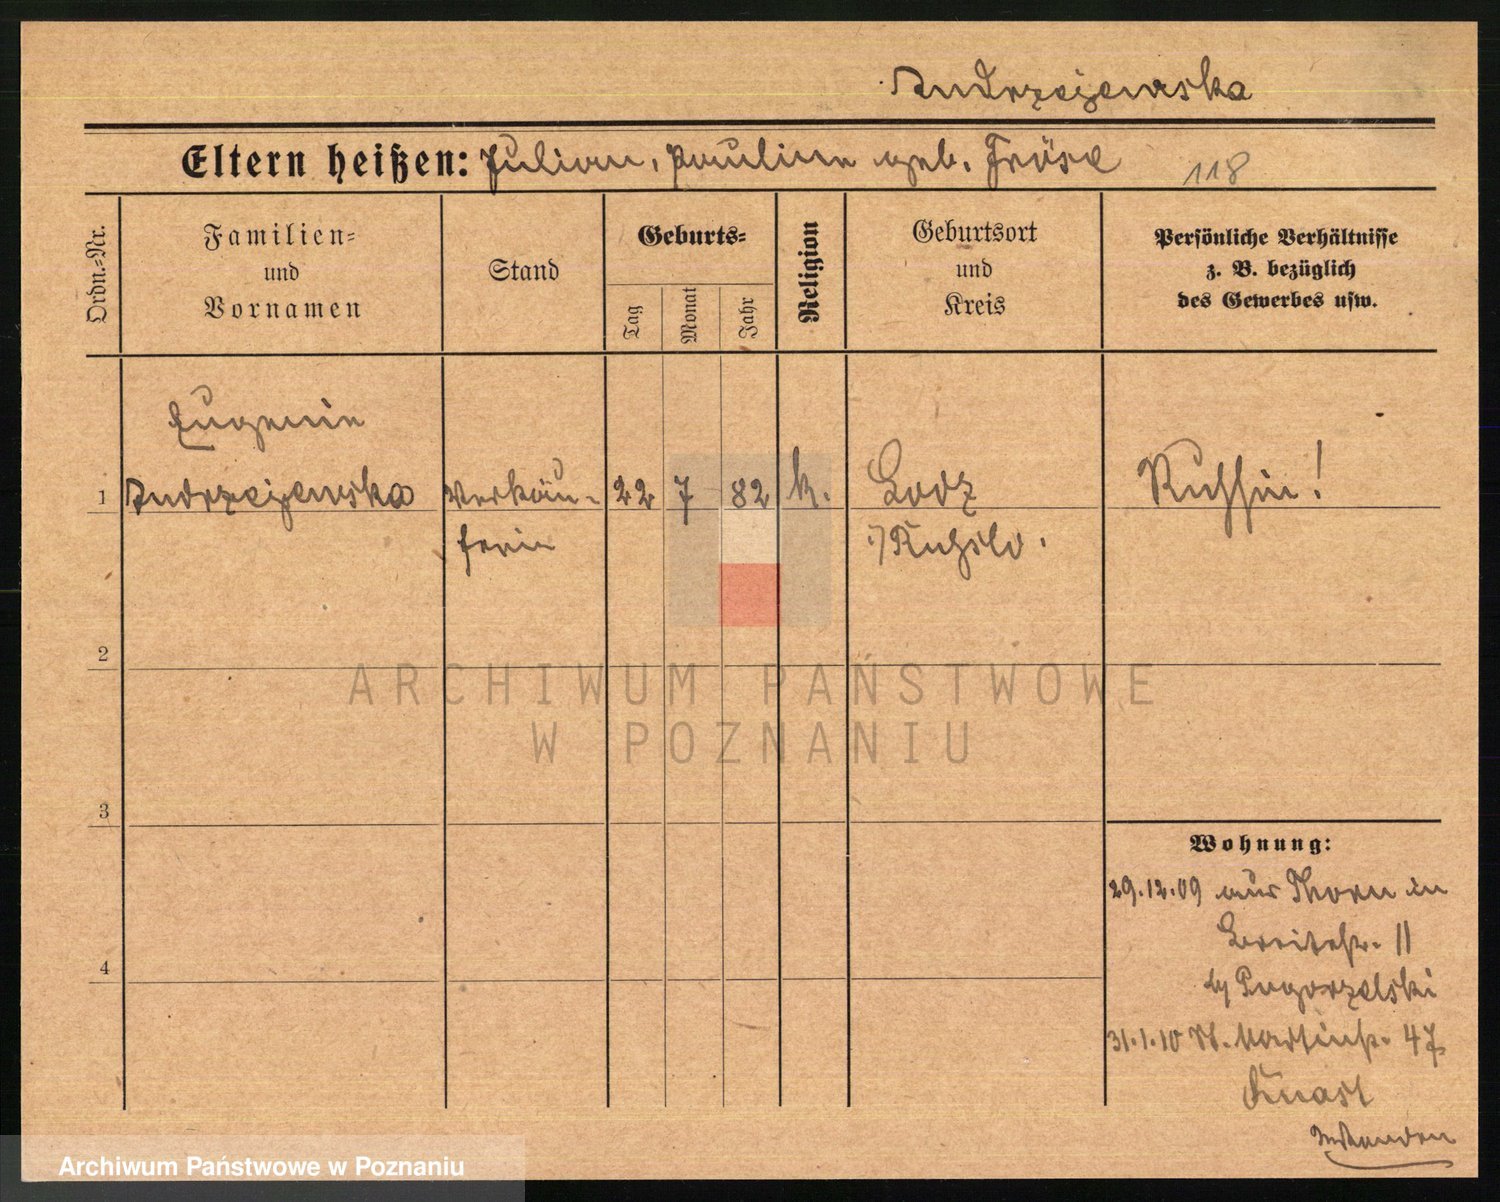 Andrzejewska
Eltern heißen: Julian, Pauline geb. Fröse
118
Ordn.-Nr.
Familien-
und
Vornamen
Stand
Geburts-
Tag
Monat
Jahr
Religion
Geburtsort
und
Kreis
Persönliche Verhältnisse
z. B. bezüglich
des Gewerbes usw.
Eugenie
1 Andrzejewska Verkäu- 22 7 82 k. Lodz Russin!
ferin :/Rußld.
2
3
4
Wohnung:
29.12.09 aus Thorn in
Breitestr. 11
by Pogorzelski
31.1.10 St. Martinstr. 47
Knast
ARCHIWUM PAŃSTWOWE
W POZNANIU
Archiwum Państwowe w Poznaniu